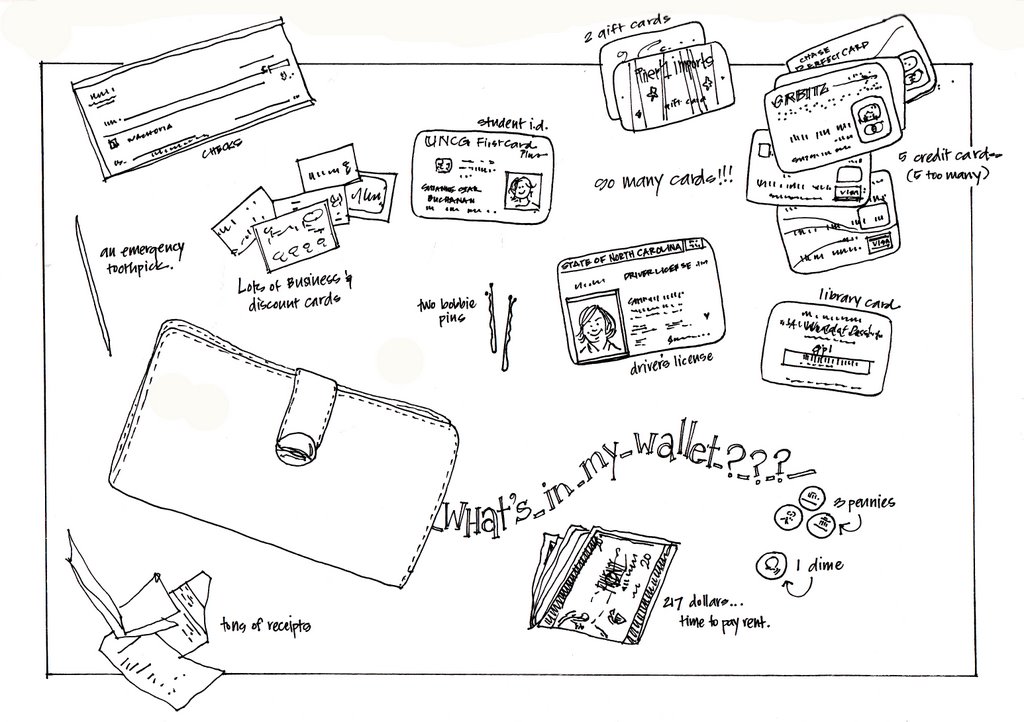 2 gift cards
Pier 1 imports
gift card
CHASE
PERFECT CARD
ORBITZ
WACHOVIA
CHECKS
student i.d.
UNCG FirstCard
Plus
BUCHANAN
so many cards!!!
5 credit cards
(5 too many)
VISA
VISA
an emergency
toothpick.
Lots of Business &
discount cards
STATE OF NORTH CAROLINA
DRIVER LICENSE
two bobbie
pins
driver's license
library card
gpl
What's in my wallet???
3 pennies
1 dime
20
217 dollars...
time to pay rent.
tons of receipts